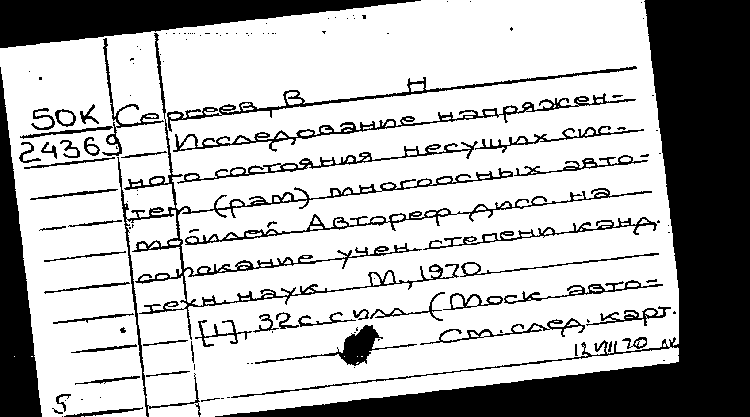 50К Сергеев, В Н
24369 Исследование напряжен-
ного состояния несущих сис-
тем (рам) многоосных авто-
мобилей. Автореф дисс. на
соискание учен. степени канд.
техн. наук. М., 1970.
[1], 32 с. с илл (Моск авто-
см. след. карт.
12 VIII 70
5